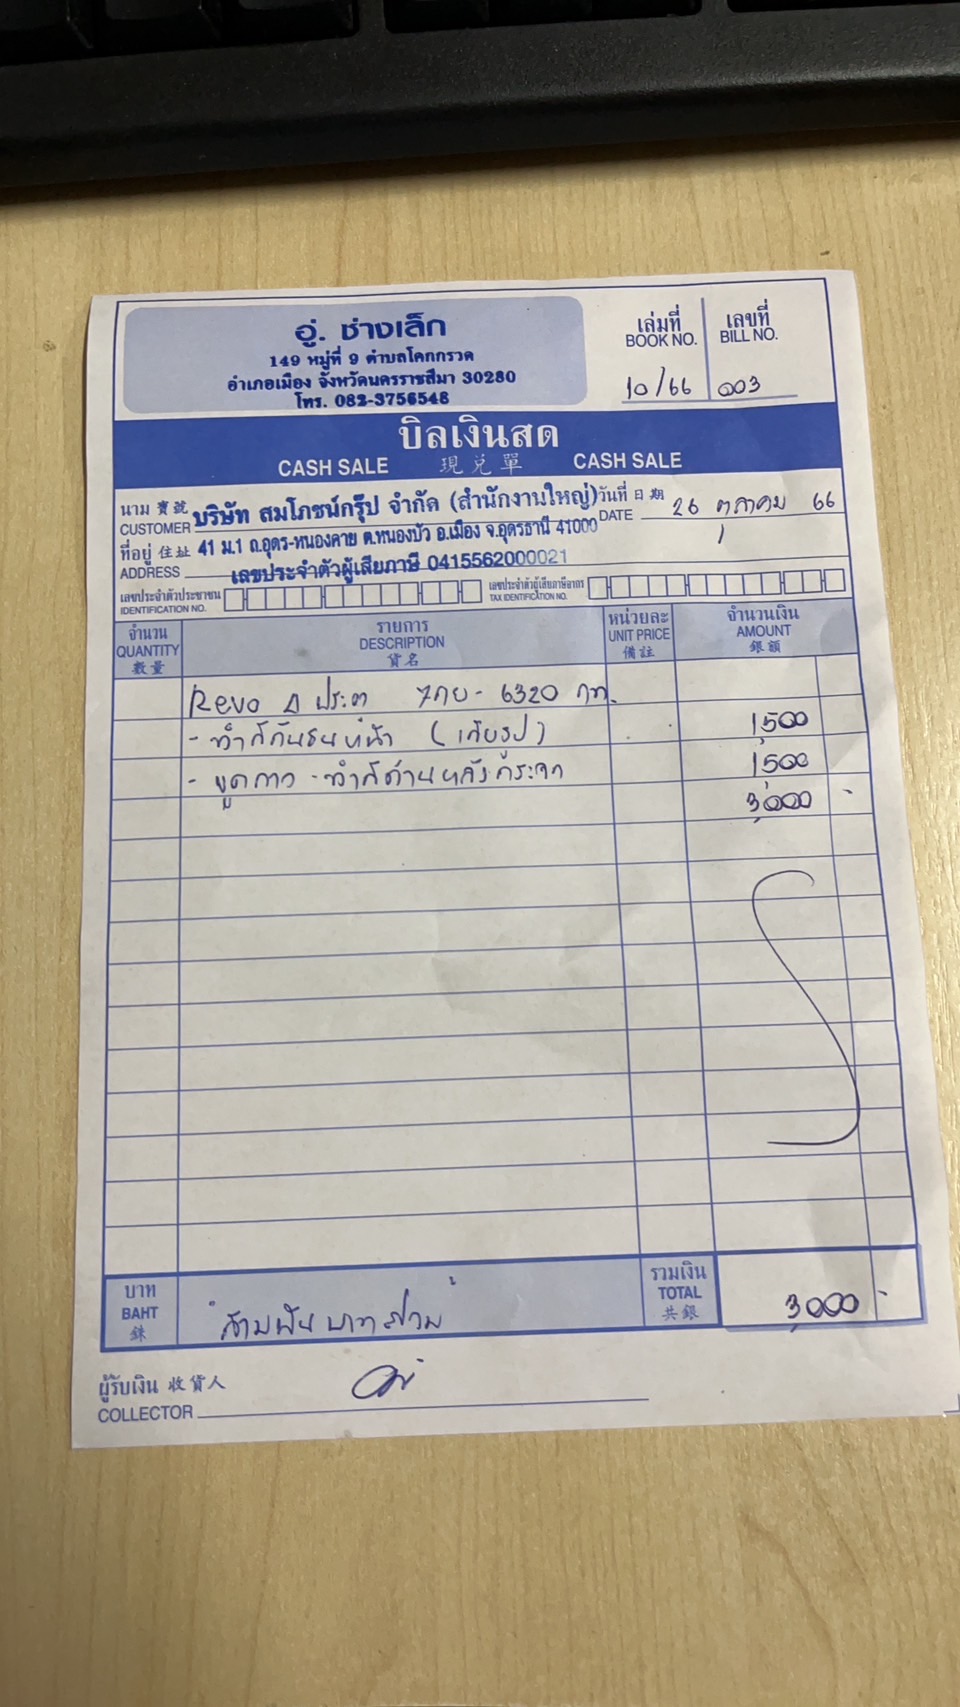 อู่. ช่างเล็ก
149 หมู่ที่ 9 ตำบลโคกกรวด
อำเภอเมือง จังหวัดนครราชสีมา 30280
โทร. 082-3756548
เล่มที่ เลขที่
BOOK NO. BILL NO.
10/66 003
บิลเงินสด
CASH SALE 現兌單 CASH SALE
นาม 寶號 บริษัท สมโภชน์กรุ๊ป จำกัด (สำนักงานใหญ่) วันที่ 日期 26 ตุลาคม 66
CUSTOMER DATE
ที่อยู่ 住址 41 ม.1 ถ.อุดร-หนองคาย ต.หนองบัว อ.เมือง จ.อุดรธานี 41000
ADDRESS เลขประจำตัวผู้เสียภาษี 0415562000021
เลขประจำตัวประชาชน เลขประจำตัวผู้เสียภาษีอากร
IDENTIFICATION NO. TAX IDENTIFICATION NO.
จำนวน รายการ หน่วยละ จำนวนเงิน
QUANTITY DESCRIPTION UNIT PRICE AMOUNT
數量 貨名 備註 銀額
Revo 4 ประตู 7กย - 6320 กท.
- ทำสีกันชนหน้า (เสียรูป) 1,500
- ขูดกาว - ทำสีด้านหลังกระจก 1,500
3,000 -
บาท รวมเงิน
BAHT สามพันบาทถ้วน TOTAL 3,000 -
銖 共銀
ผู้รับเงิน 收貨人
COLLECTOR